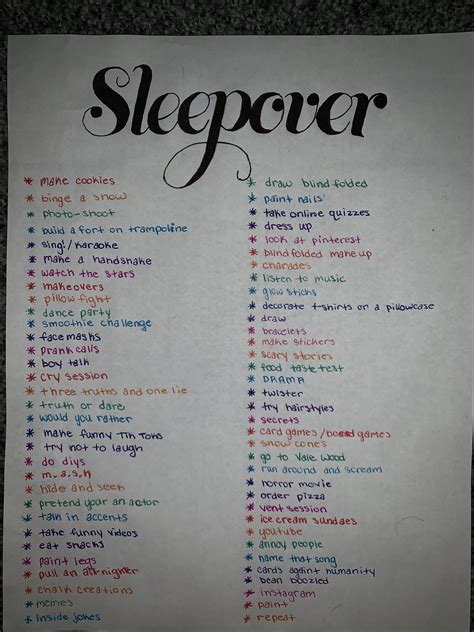 Sleepover
* make cookies
* binge a show
* photo-shoot
* build a fort on trampoline
* sing!/karaoke
* make a handshake
* watch the stars
* makeovers
* pillow fight
* dance party
* smoothie challenge
* face masks
* prank calls
* boy talk
* cry session
* three truths and one lie
* truth or dare
* would you rather
* make funny Tik Toks
* try not to laugh
* do diys
* m.a.s.h
* hide and seek
* pretend your an actor
* talk in accents
* take funny videos
* eat snacks
* paint legs
* pull an all-nighter
* chalk creations
* memes
* inside jokes
* draw blind folded
* paint nails
* take online quizzes
* dress up
* look at pinterest
* blind folded make up
* charades
* listen to music
* glow sticks
* decorate t-shirts or a pillowcase
* draw
* bracelets
* make stickers
* scary stories
* food taste test
* DRAMA
* twister
* try hairstyles
* secrets
* card games/board games
* snow cones
* go to Vale Wood
* run around and scream
* horror movie
* order pizza
* vent session
* ice cream sundaes
* youtube
* annoy people
* name that song
* cards against humanity
* bean boozled
* instagram
* paint
* repeat